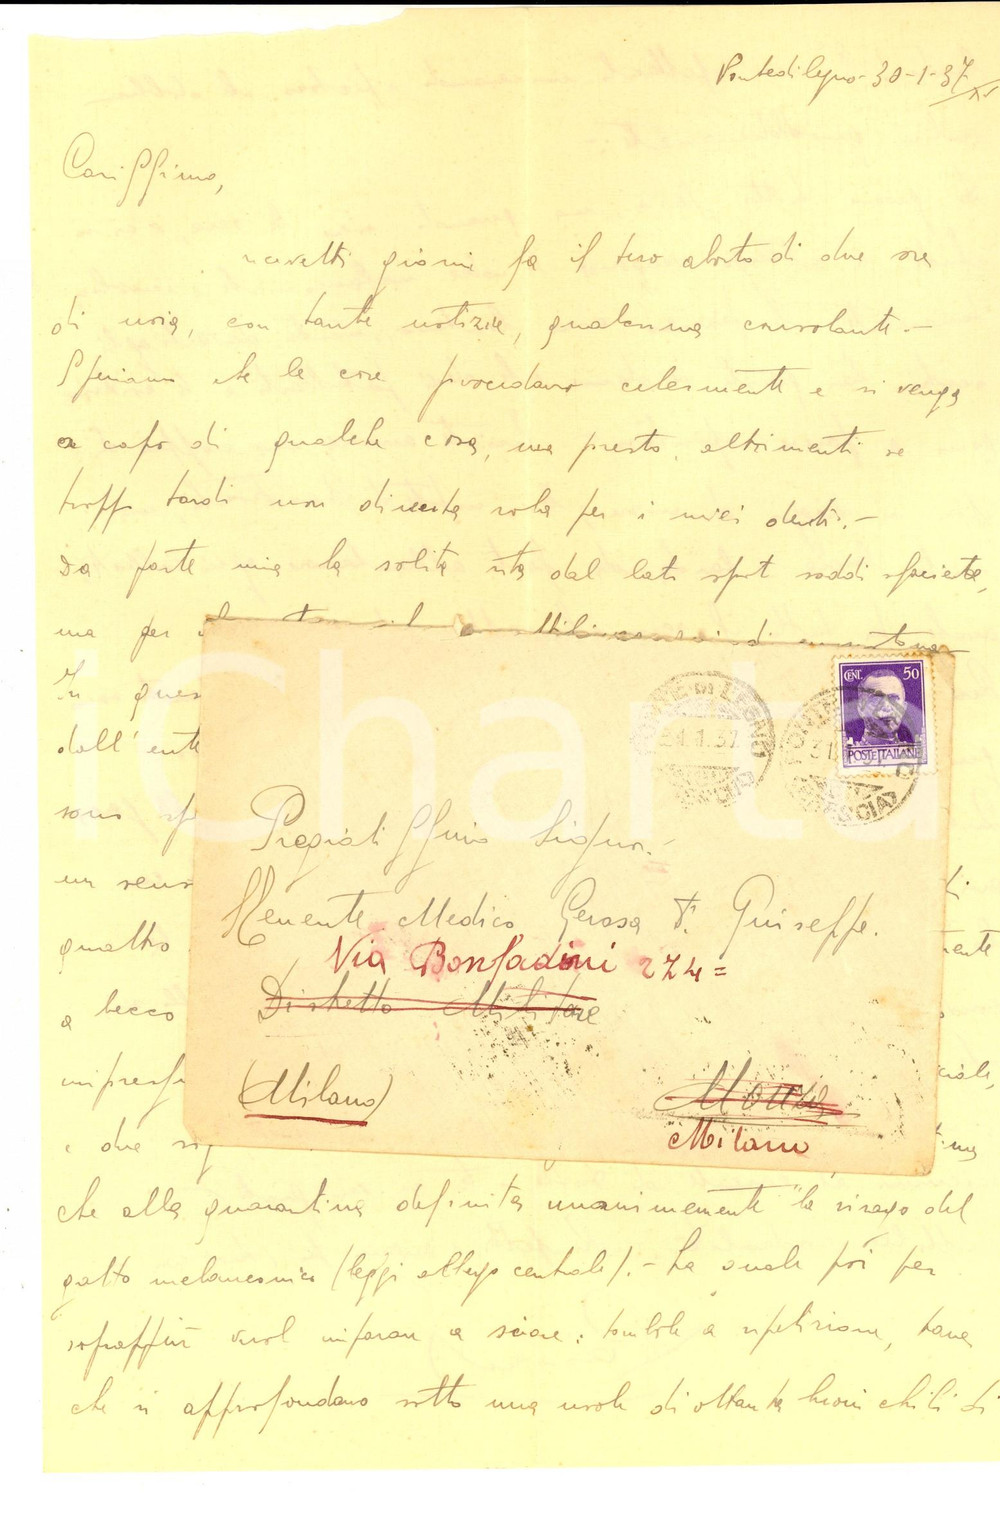 Pontedilegno - 30-1-37/XV
Carissimo,
ricevetti giorni fa il tuo aborto di due ore
di noia, con tante notizie, qualcuna consolante. -
Speriamo che le cose procedano celermente e si venga
a capo di qualche cosa, ma presto, altrimenti se
troppo tardi non diventa roba per i miei denti. -
Da parte mia la solita vita dal lato sport soddisfacente,
ma per
In ques
dall'ente
sono spe
un sens
quattro
ente
a becco
impressi
ciale,
e due sig
che alla quarantina definita unanimemente "la virago del
gatto melanconico (leggi albergo centrale). - La quale poi per
soprappiù vuol imparare a sciare: tombole a ripetizione, tane
che si approfondano sotto una mole di ottanta buoni chili di
CENT. 50
POSTE ITALIANE
PONTE DI LEGNO
31.1.37
(BRESCIA)
Pregiatissimo Signor.
Tenente Medico Gerosa Dr. Giuseppe.
Via Bonfadini 274=
Distretto Militare
(Milano)
Monza
Milano
iCharta